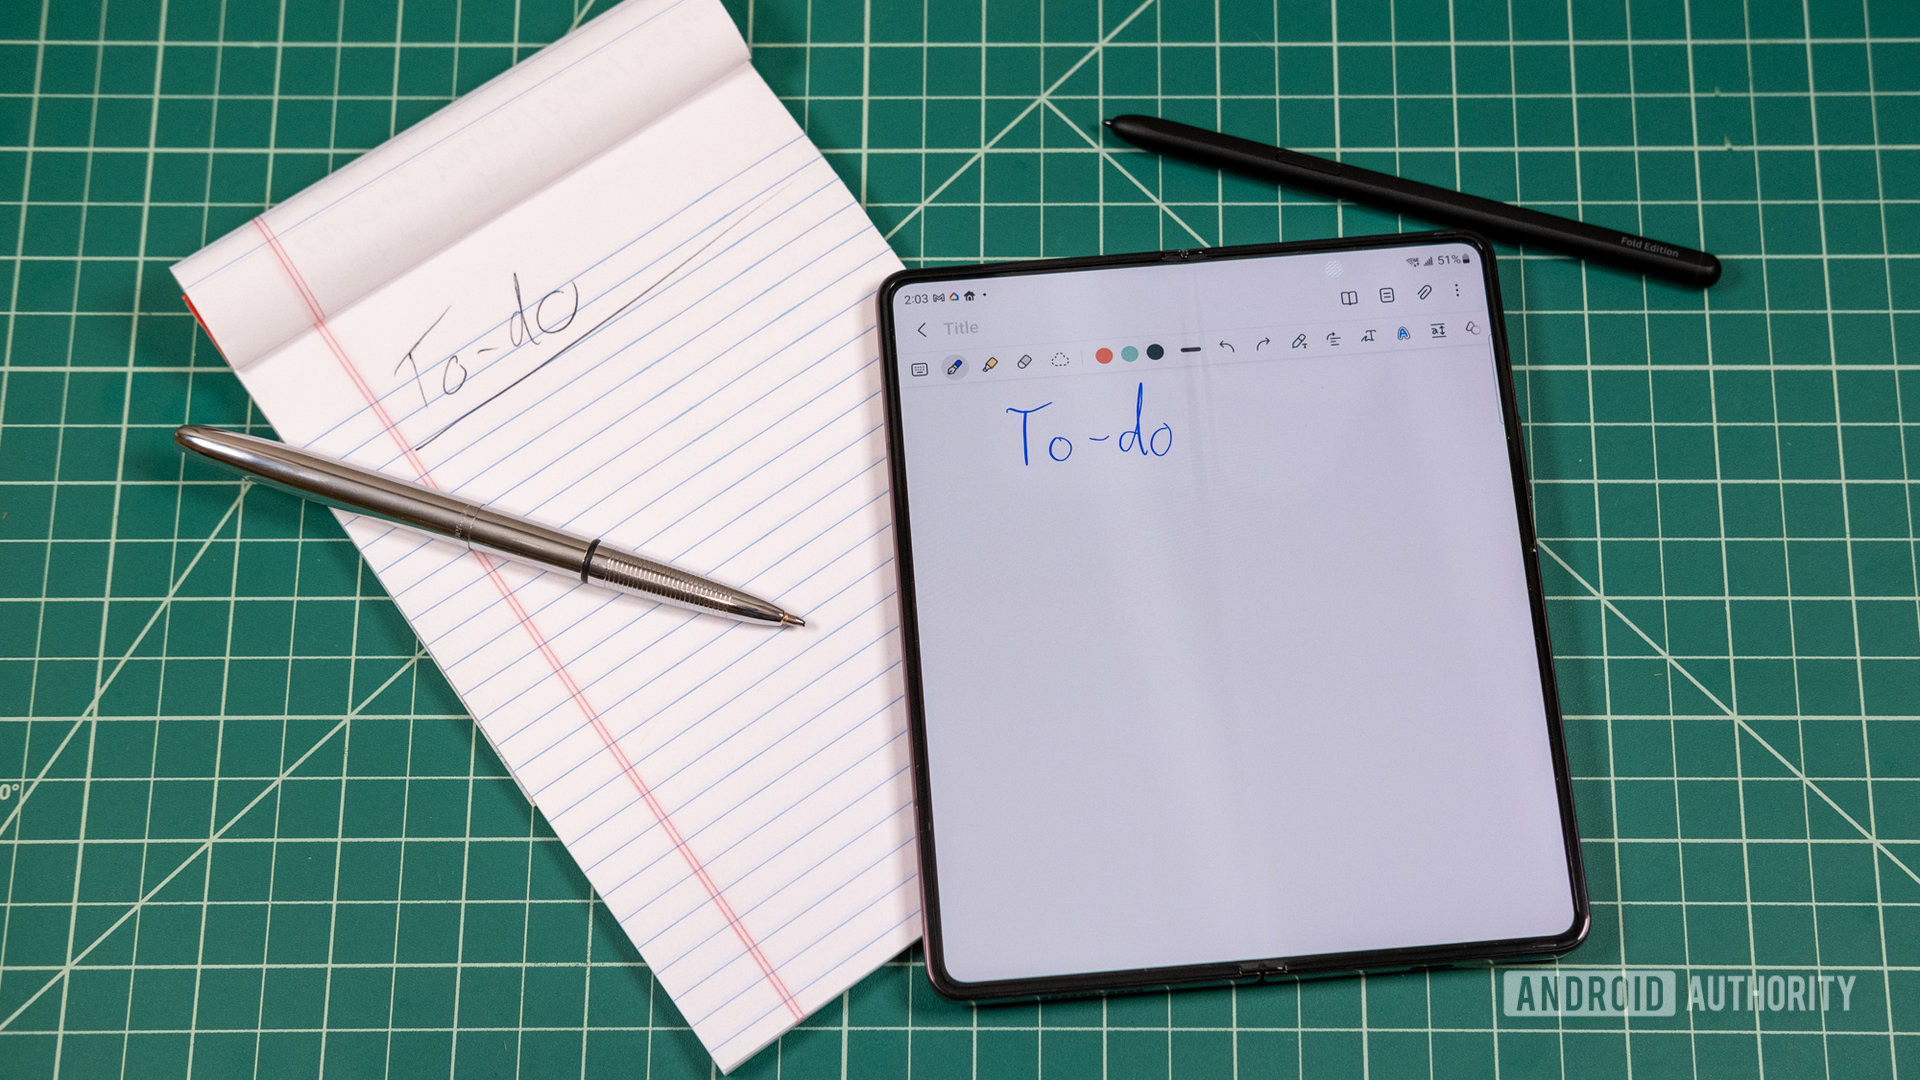 To-do
Fold Edition
2:03
51%
Title
To-do
0°
ANDROID AUTHORITY